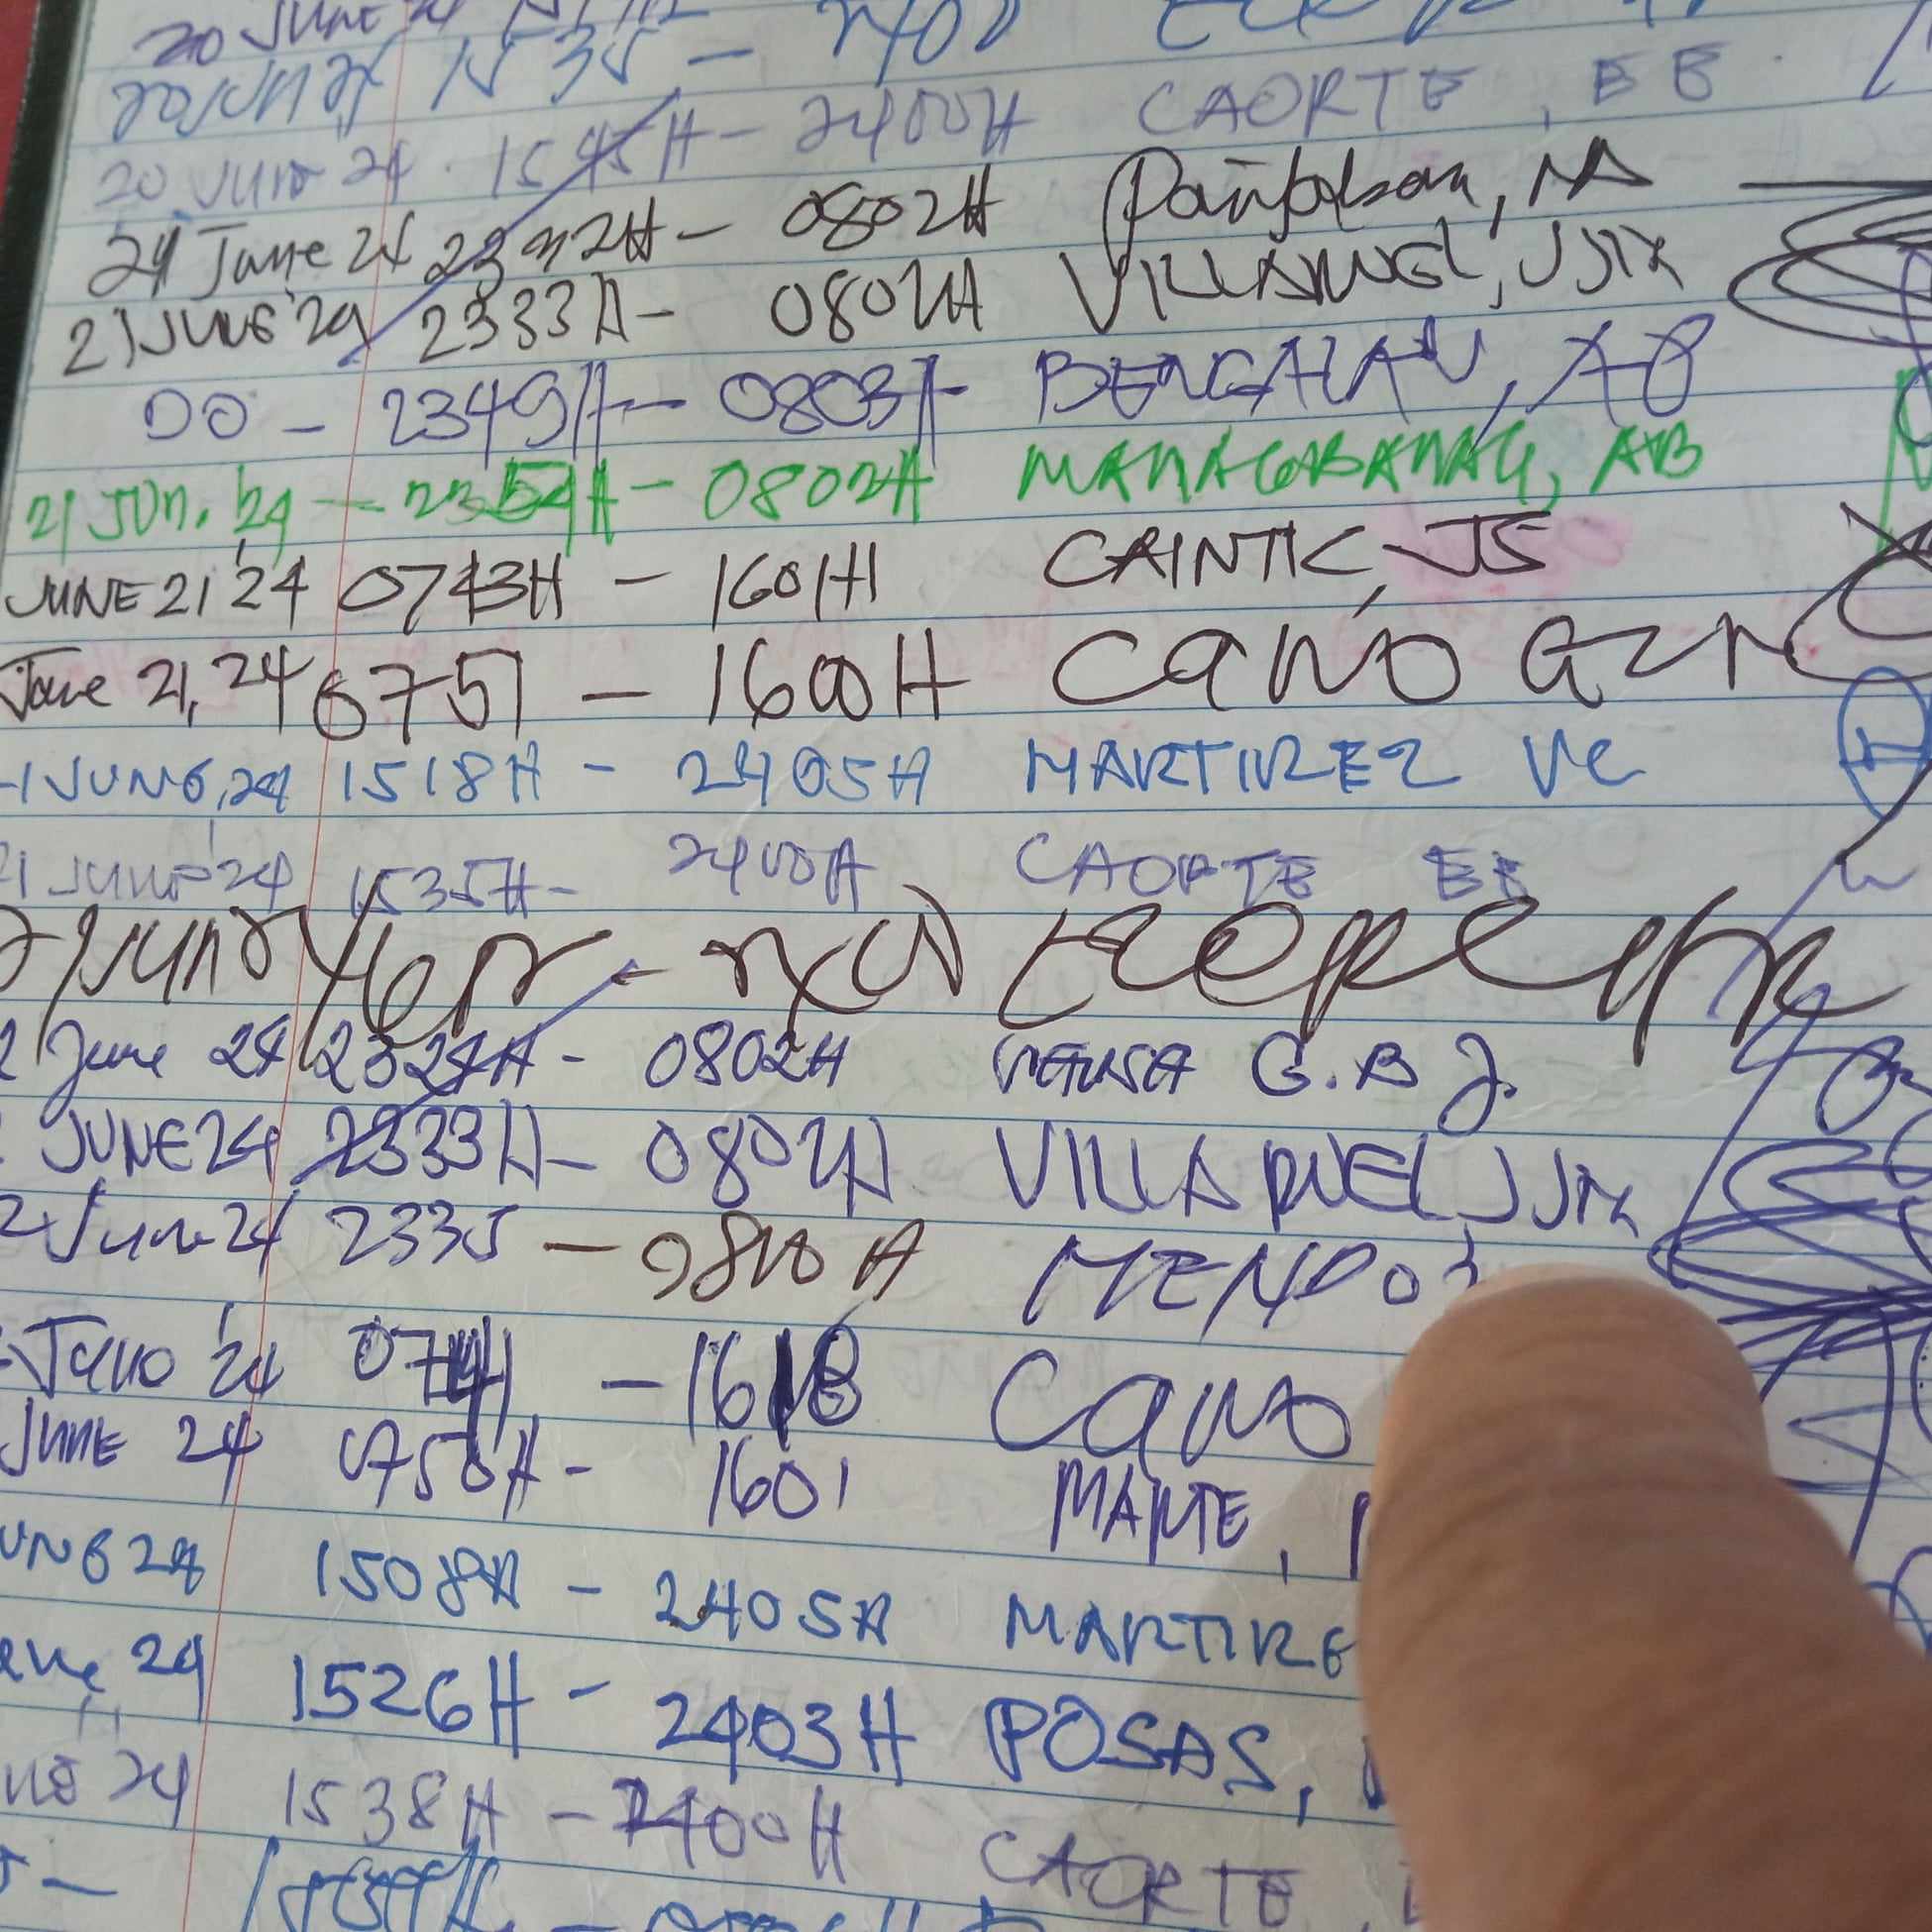 20 JUNE 24
1535 -
20 JUNE 24 1545H - 2400H CAORTE, EB
21 June 24 2332H - 0802H
21 JUNE '24 2333H - 0802H VILLARUEL, JJR
DO - 2349H - 0803H BENGALAN, AP
21 JUN. '24 - 2354H - 0802H MANAGBANAG, AB
JUNE 21 '24 0743H - 1601H CAINTIC, JS
June 21, 24 0751 - 1600H CANO
1 JUNE, 24 1518H - 2405H MARTIREZ VC
1 JUNE '24 1535H - 2400H CAORTE EB
2 June 24 2324H - 0802H G.B J.
JUNE 24 2333H - 0802H VILLARUEL JJR
2 June 24 2335 - 0810H MENDOZ
June '24 0741 - 1618 CANO
JUNE 24 0758H - 1601 MANTE,
UNE 24 1508H - 2405H MARTIRE
une 24 1526H - 2403H POSAS,
NE 24 1538H - 2400H CAORTE,